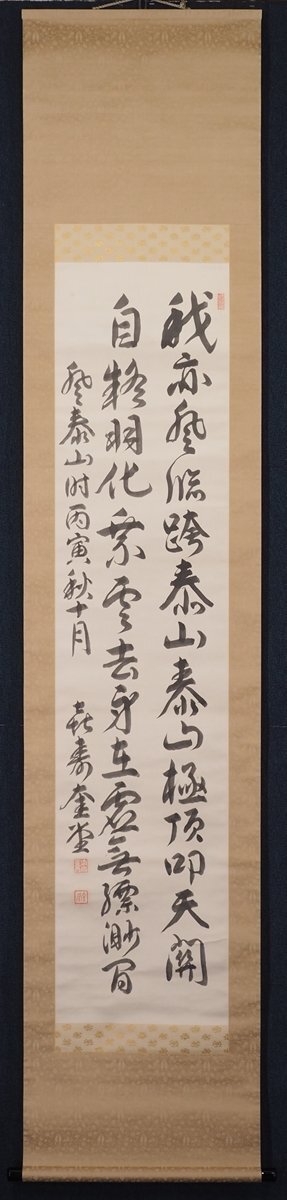 我亦登臨跨泰山泰山極頂叩天關
自矜羽化乗雲去身在虚無縹渺間
登泰山時丙寅秋十月 喜寿奎堂